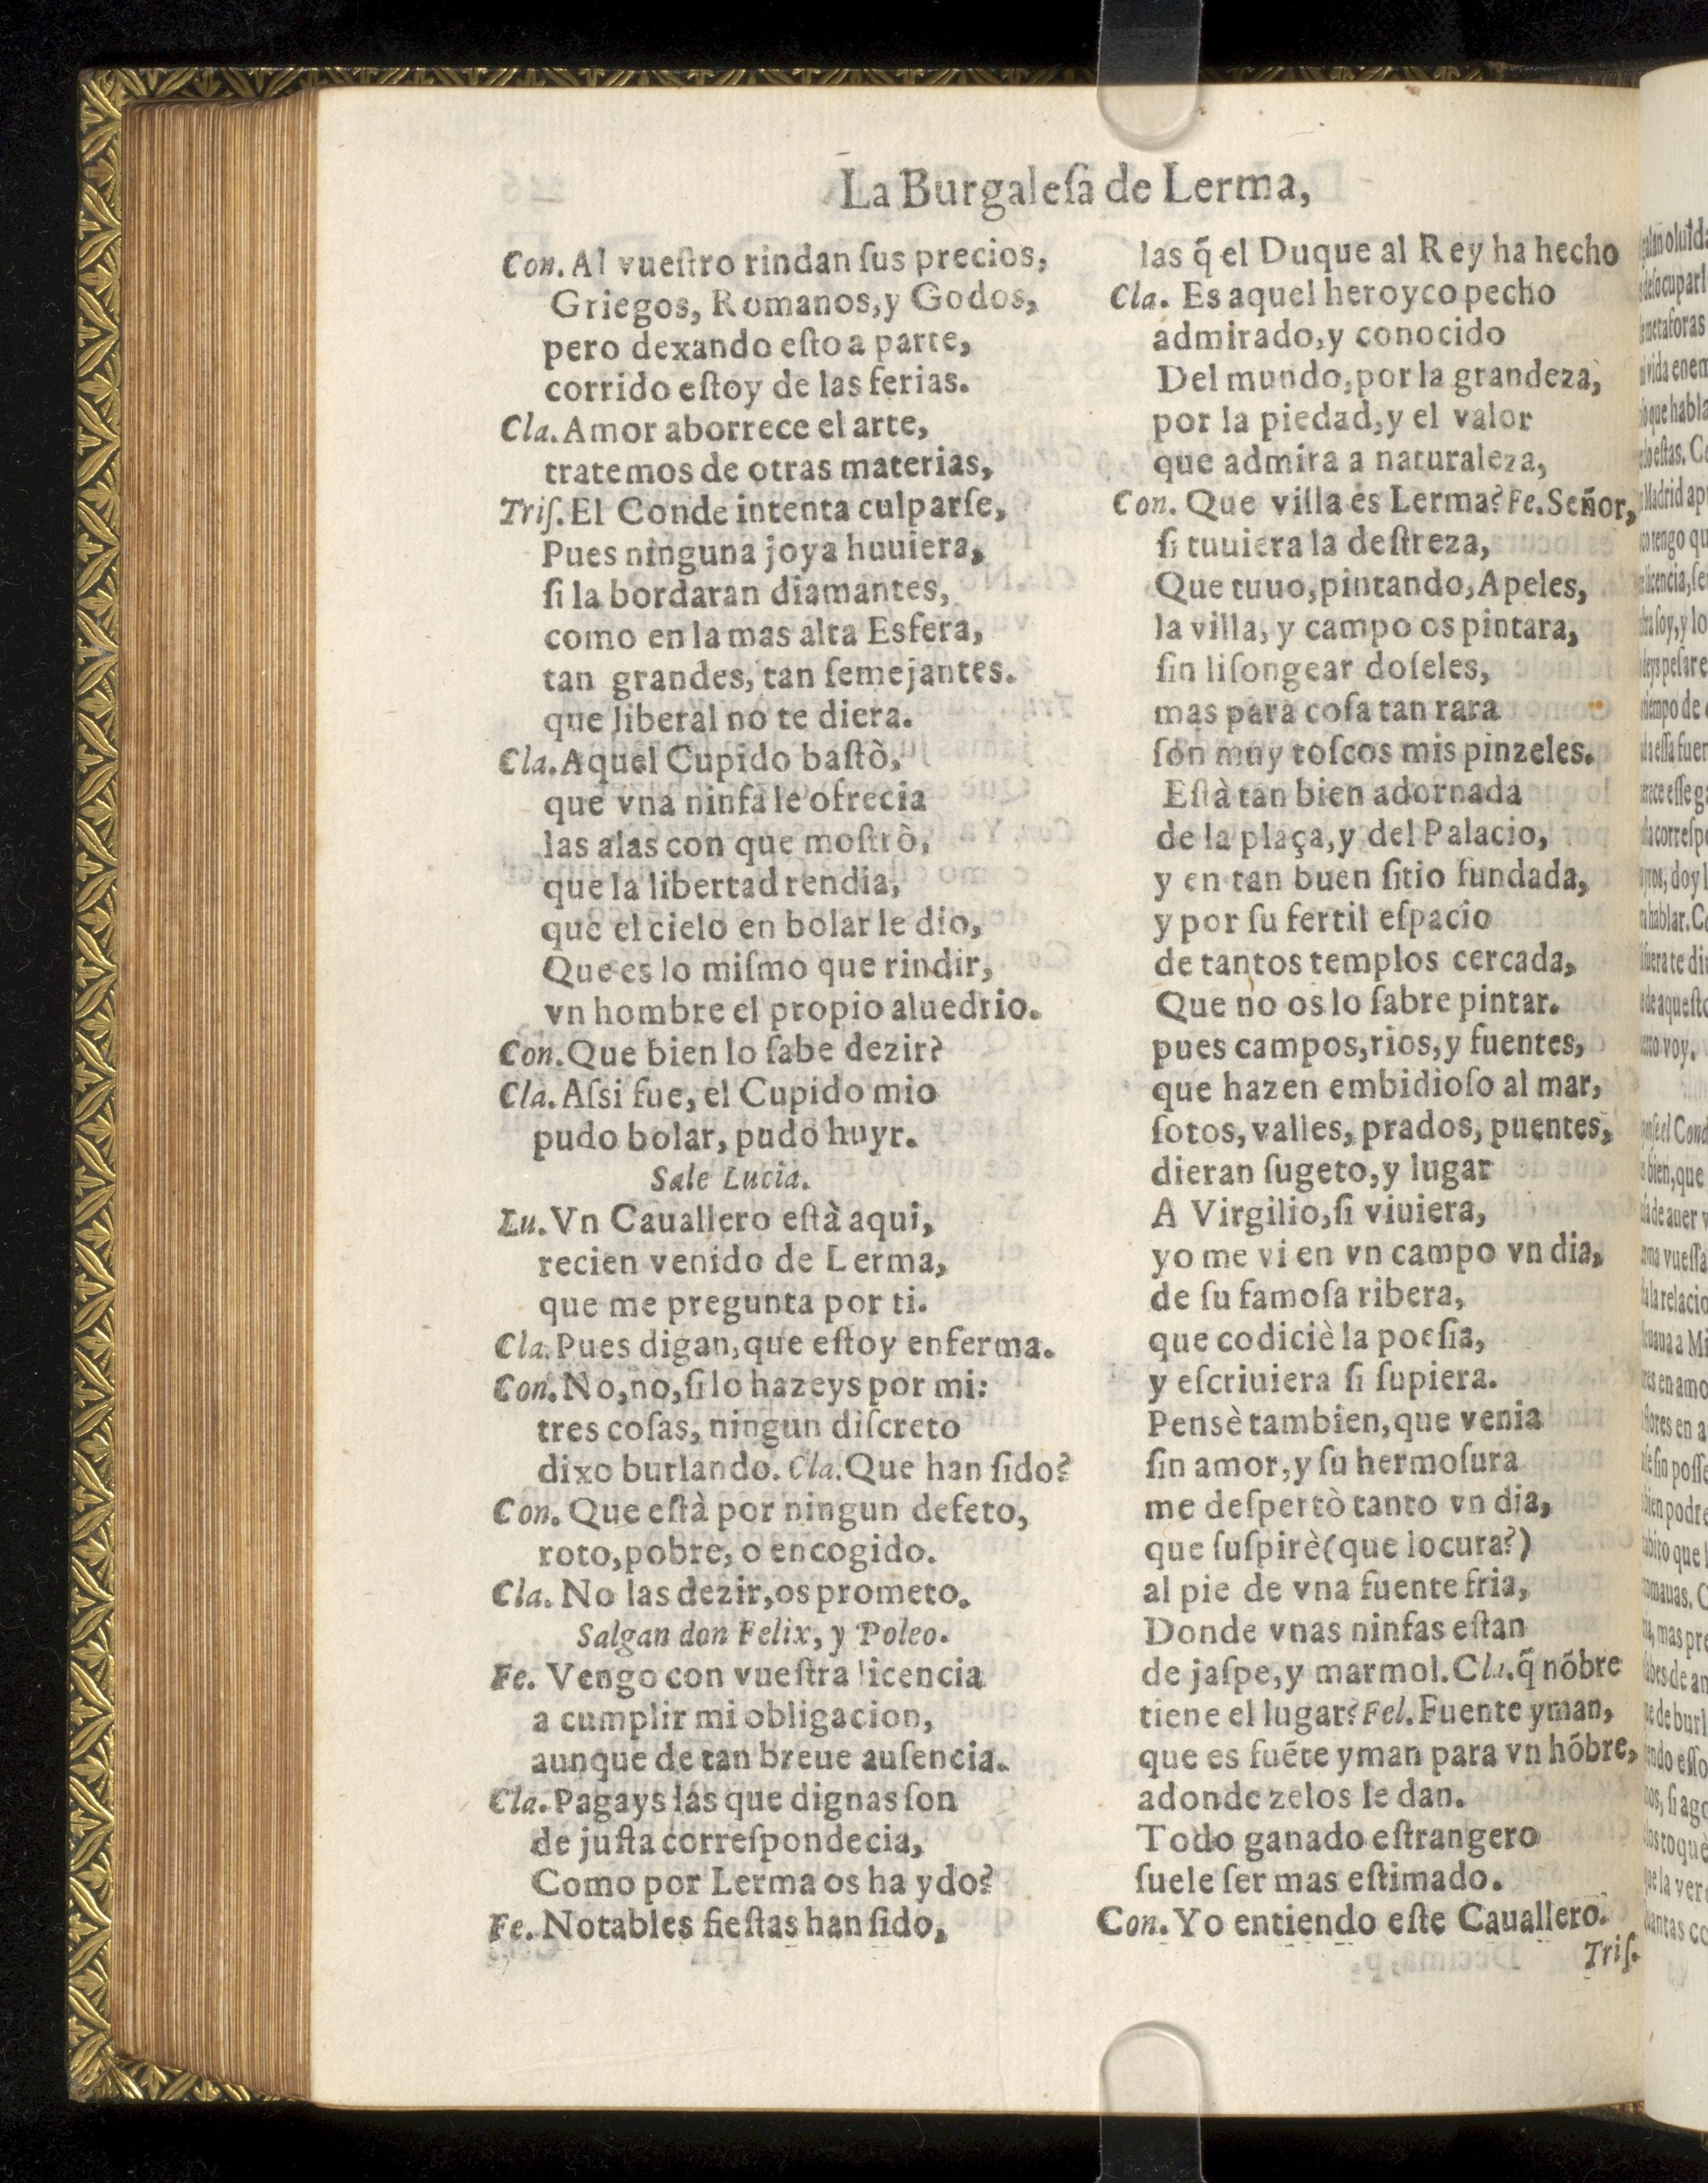 La Burgaleſa de Lerma,
Con. Al vueſtro rindan ſus precios,
Griegos, Romanos, y Godos,
pero dexando eſto a parte,
corrido eſtoy de las ferias.
Cla. Amor aborrece el arte,
tratemos de otras materias,
Triſ. El Conde intenta culparſe,
Pues ninguna joya huuiera,
ſi la bordaran diamantes,
como en la mas alta Esfera,
tan grandes, tan ſemejantes.
que liberal no te diera.
Cla. Aquel Cupido baſtò,
que vna ninfa le ofrecia
las alas con que moſtrò,
que la libertad rendia,
que el cielo en bolar le dio,
Que es lo miſmo que rindir,
vn hombre el propio aluedrio.
Con. Que bien lo ſabe dezir?
Cla. Aſsi fue, el Cupido mio
pudo bolar, pudo huyr.
Sale Lucia.
Lu. Vn Cauallero eſtà aqui,
recien venido de Lerma,
que me pregunta por ti.
Cla. Pues digan, que eſtoy enferma.
Con. No, no, ſi lo hazeys por mi:
tres coſas, ningun diſcreto
dixo burlando. Cla. Que han ſido?
Con. Que eſtà por ningun defeto,
roto, pobre, o encogido.
Cla. No las dezir, os prometo.
Salgan don Felix, y Poleo.
Fe. Vengo con vueſtra licencia
a cumplir mi obligacion,
aunque de tan breue auſencia.
Cla. Pagays las que dignas ſon
de juſta correſpondecia,
Como por Lerma os ha ydo?
Fe. Notables fieſtas han ſido,
las q̃ el Duque al Rey ha hecho
Cla. Es aquel heroyco pecho
admirado, y conocido
Del mundo, por la grandeza,
por la piedad, y el valor
que admira a naturaleza,
Con. Que villa es Lerma? Fe. Señor,
ſi tuuiera la deſtreza,
Que tuuo, pintando, Apeles,
la villa, y campo os pintara,
ſin liſongear doſeles,
mas para coſa tan rara
ſon muy toſcos mis pinzeles.
Eſtà tan bien adornada
de la plaça, y del Palacio,
y en tan buen ſitio fundada,
y por ſu fertil eſpacio
de tantos templos cercada,
Que no os lo ſabre pintar.
pues campos, rios, y fuentes,
que hazen embidioſo al mar,
ſotos, valles, prados, puentes,
dieran ſugeto, y lugar
A Virgilio, ſi viuiera,
yo me vi en vn campo vn dia,
de ſu famoſa ribera,
que codiciè la poeſia,
y eſcriuiera ſi ſupiera.
Pensè tambien, que venia
ſin amor, y ſu hermoſura
me deſpertò tanto vn dia,
que ſuſpirè (que locura?)
al pie de vna fuente fria,
Donde vnas ninfas eſtan
de jaſpe, y marmol. Cla. q̃ nõbre
tiene el lugar? Fel. Fuente yman,
que es fuẽte yman para vn hõbre,
adonde zelos le dan.
Todo ganado eſtrangero
ſuele ſer mas eſtimado.
Con. Yo entiendo eſte Cauallero.
Triſ.